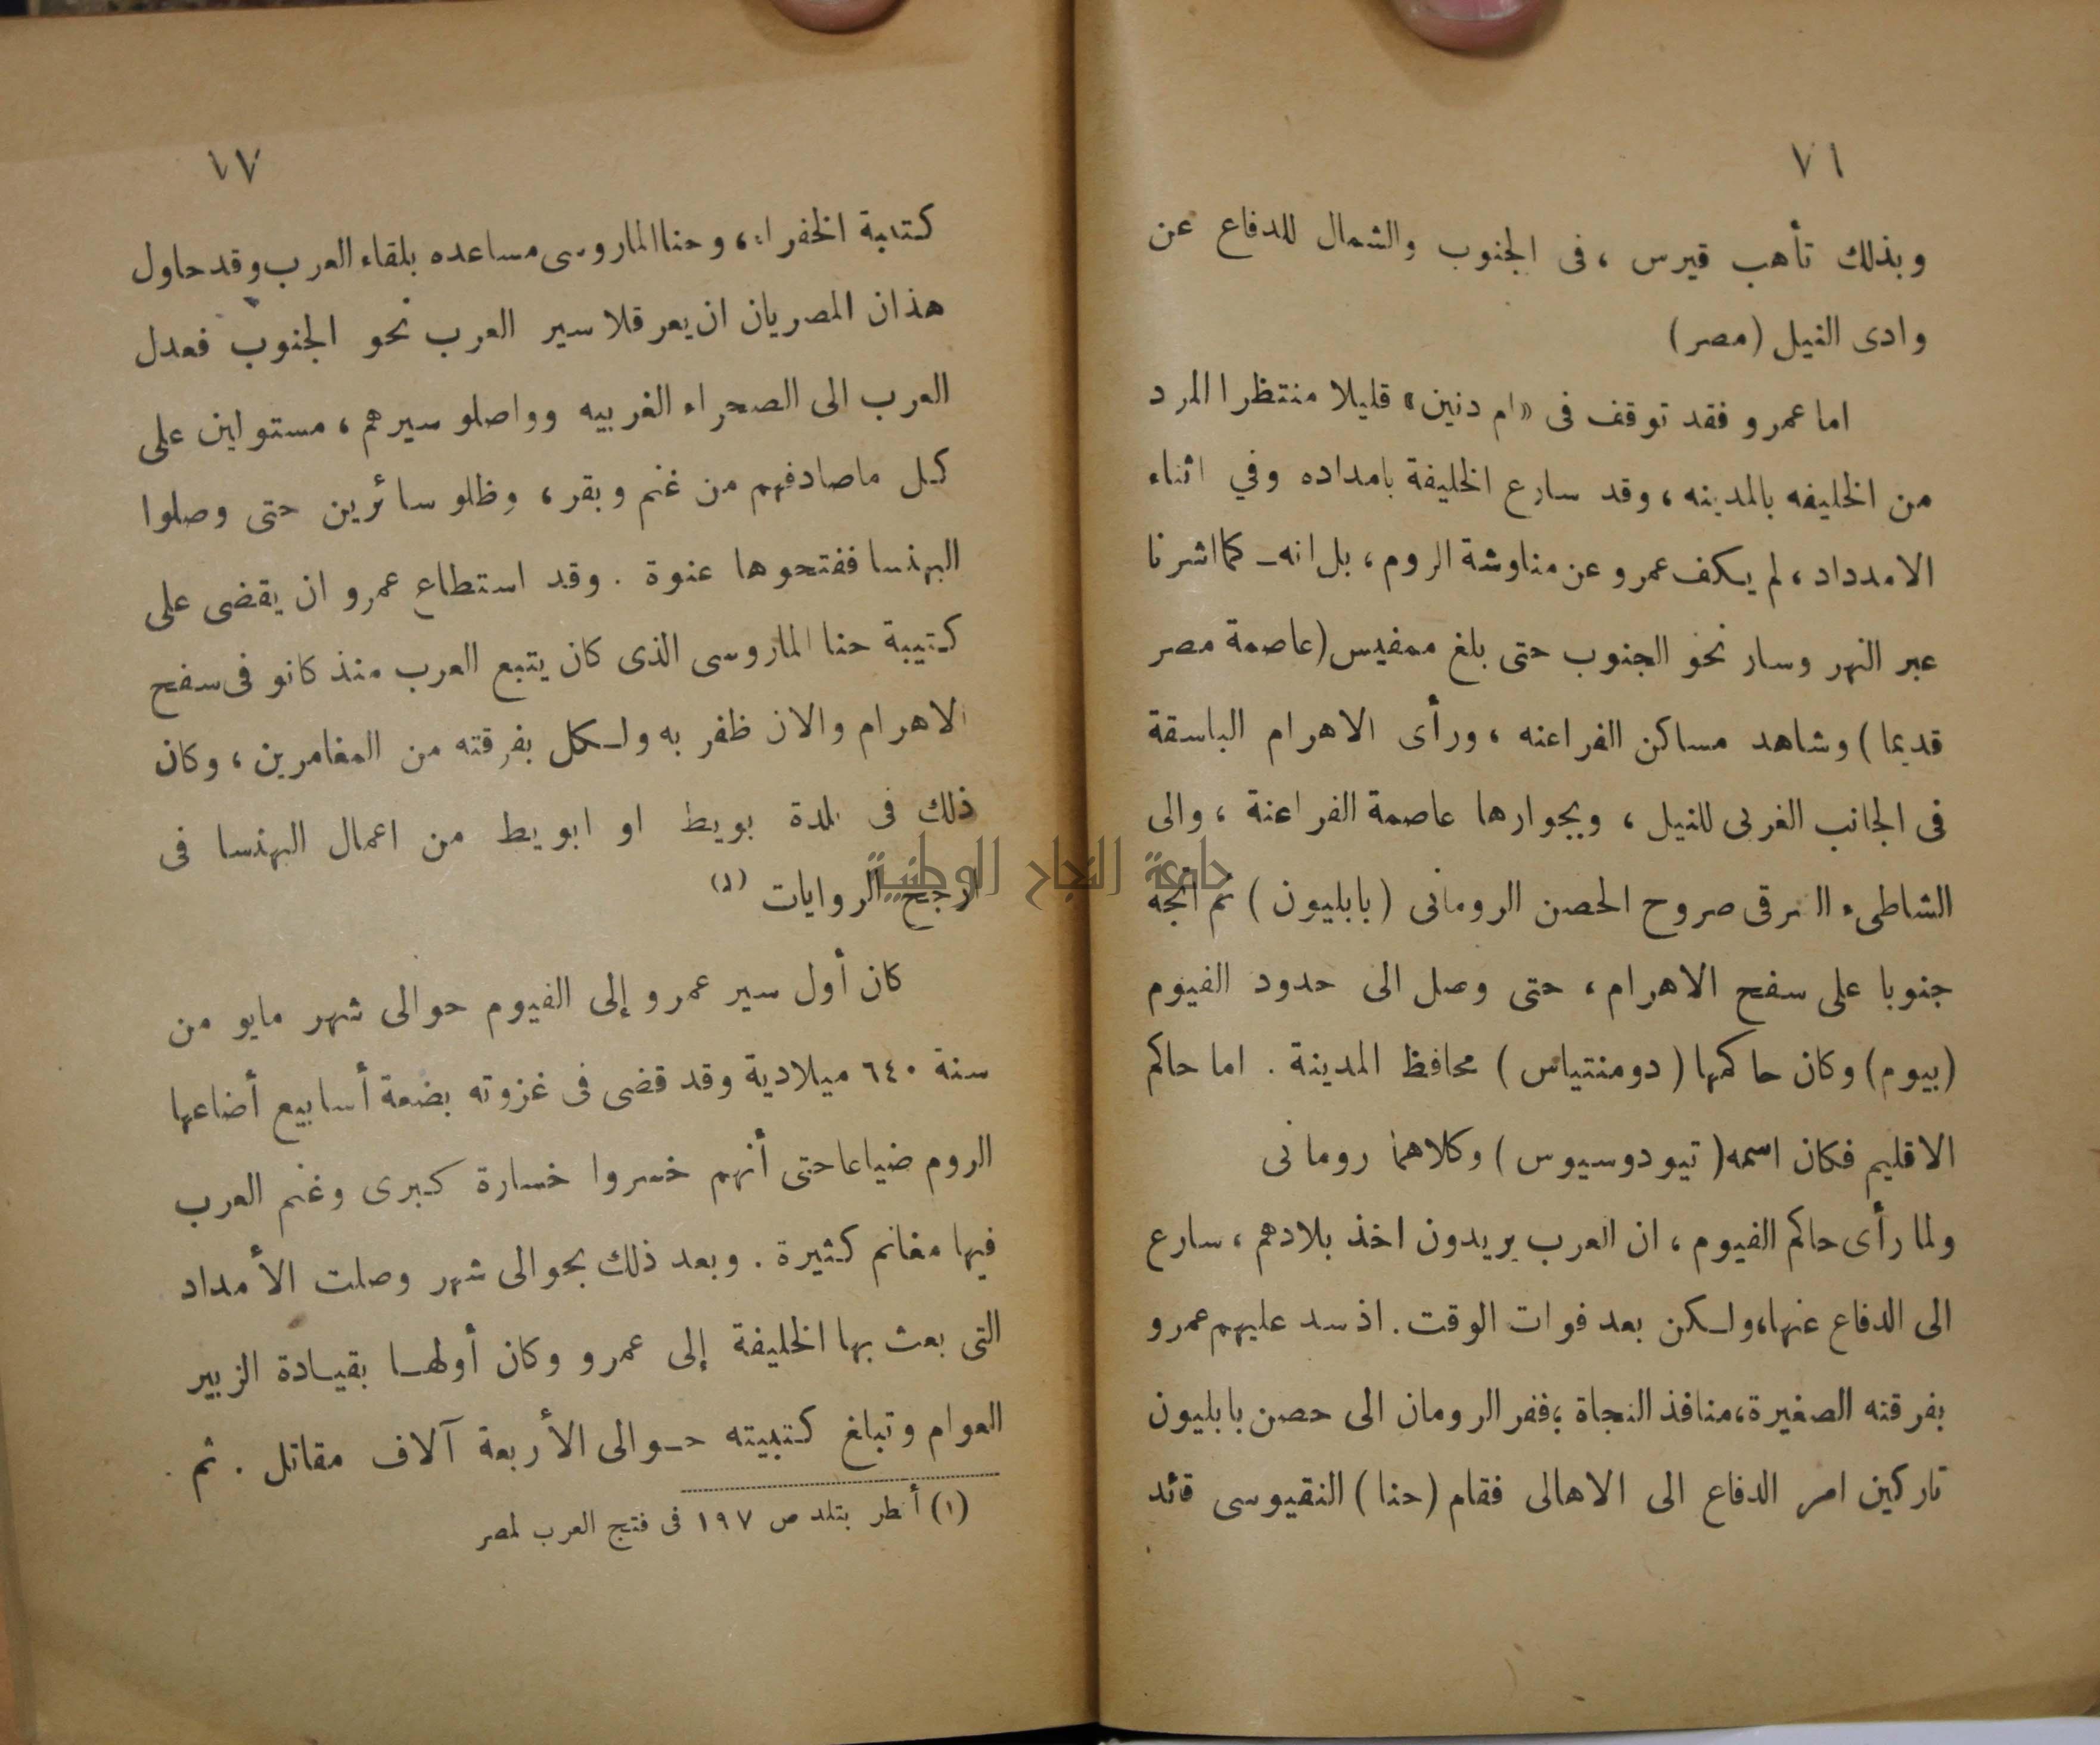 ٧١
وبذلك تأهب قيرس ، فى الجنوب والشمال للدفاع عن
وادى النيل (مصر)
اما عمرو فقد توقف فى «ام دنين» قليلا منتظرا المرد
من الخليفه بالمدينه ، وقد سارع الخليفة بامداده وفي اثناء
الامدداد ، لم يكف عمرو عن مناوشة الروم ، بل انه ـ كما اشرنا
عبر النهر وسار نحو الجنوب حتى بلغ ممفيس (عاصمة مصر
قديما ) وشاهد مساكن الفراعنه ، ورأى الاهرام الباسقة
فى الجانب الغربى للنيل ، وبجوارها عاصمة الفراعنة ، والى
الشاطىء الشرقى صروح الحصن الرومانى ( بابليون ) ثم اتجه
جنوبا على سفح الاهرام ، حتى وصل الى حدود الفيوم
(بيوم) وكان حاكمها ( دومنتياس ) محافظ المدينة . اما حاكم
الاقليم فكان اسمه ( تيودوسيوس ) وكلاهما رومانى
ولما رأى حاكم الفيوم ، ان العرب يريدون اخذ بلادهم ، سارع
الى الدفاع عنها، ولكن بعد فوات الوقت . اذ سد عليهم عمرو
بفرقته الصغيرة، منافذ النجاة ؛ ففر الرومان الى حصن بابليون
تاركين امر الدفاع الى الاهالى فقام (حنا ) النقيوسى قائد
١٧
كتيبة الخفراء ، وحنا الماروسى مساعده بلقاء العرب وقد حاول
هذان المصريان ان يعرقلا سير العرب نحو الجنوب فعدل
العرب الى الصحراء الغربيه وواصلو سيرهم ، مستولين على
كل ماصادفهم من غنم وبقر ، وظلو سائرين حتى وصلوا
البهنسا ففتحوها عنوة . وقد استطاع عمرو ان يقضى على
كتيبة حنا الماروسى الذى كان يتبع العرب منذ كانو فى سفح
الاهرام والان ظفر به ولكل بفرقته من المغامرين ، وكان
ذلك فى بلدة بويط او ابويط من اعمال البهنسا فى
ارجح الروايات (١)
كان أول سير عمرو إلى الفيوم حوالى شهر مايو من
سنة ٦٤٠ ميلادية وقد قضى فى غزوته بضعة أسابيع أضاعها
الروم ضياعا حتى أنهم خسروا خسارة كبرى وغنم العرب
فيها مغانم كثيرة . وبعد ذلك بحوالى شهر وصلت الأمداد
التى بعث بها الخليفة إلى عمرو وكان أولها بقيادة الزبير
العوام وتبلغ كتيبته حوالى الأربعة آلاف مقاتل . ثم
(١) أنظر بتلد ص ١٩٧ فى فتح العرب لمصر
جامعة النجاح الوطنية